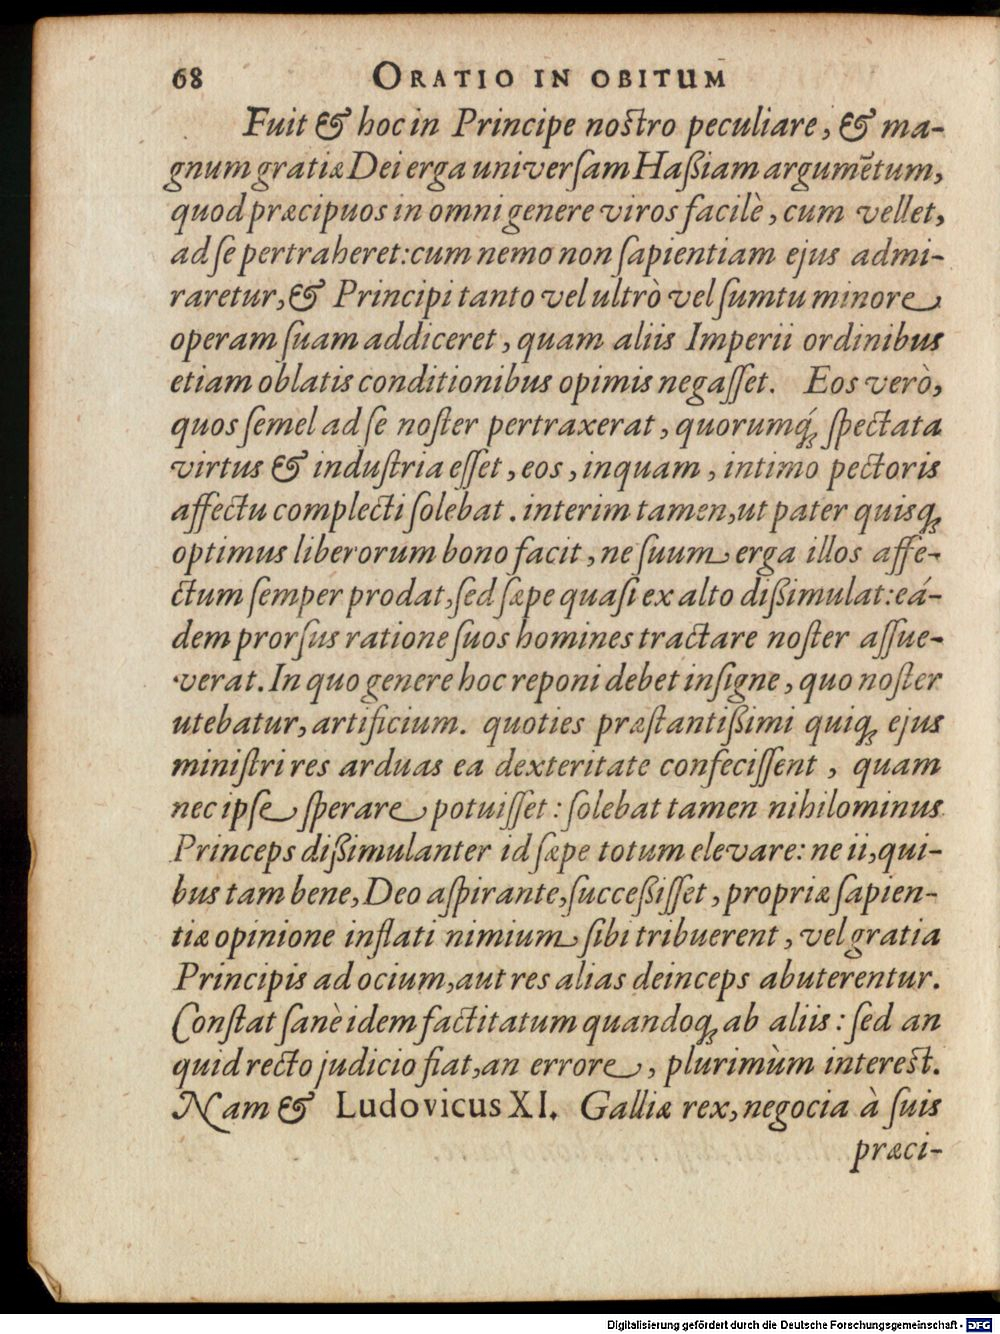 68 ORATIO IN OBITUM
Fuit & hoc in Principe nostro peculiare, & ma-
gnum gratiæ Dei erga univerſam Haßiam argumētum,
quod præcipuos in omni genere viros facilè, cum vellet,
ad ſe pertraheret: cum nemo non ſapientiam ejus admi-
raretur, & Principi tanto vel ultrò vel ſumtu minore
operam ſuam addiceret, quam aliis Imperii ordinibus
etiam oblatis conditionibus opimis negaſſet. Eos verò,
quos ſemel ad ſe noſter pertraxerat, quorumq́ꝫ ſpectata
virtus & induſtria eſſet, eos, inquam, intimo pectoris
affectu complecti ſolebat. interim tamen, ut pater quisqꝫ
optimus liberorum bono facit, ne ſuum erga illos affe-
ctum ſemper prodat, ſed ſæpe quaſi ex alto dißimulat: eá-
dem prorſus ratione ſuos homines tractare noſter aſſue-
verat. In quo genere hoc reponi debet inſigne, quo noſter
utebatur, artificium. quoties præſtantißimi quiqꝫ ejus
miniſtri res arduas ea dexteritate confeciſſent, quam
nec ipſe ſperare potuiſſet: ſolebat tamen nihilominus
Princeps dißimulanter id ſæpe totum elevare: ne ii, qui-
bus tam bene, Deo aſpirante, ſucceßiſſet, propriæ ſapien-
tiæ opinione inflati nimium ſibi tribuerent, vel gratia
Principis ad ocium, aut res alias deinceps abuterentur.
Conſtat ſanè idem factitatum quandoqꝫ ab aliis: ſed an
quid recto judicio fiat, an errore, plurimùm interest.
Nam & Ludovicus XI. Galliæ rex, negocia à ſuis
præci-
Digitalisierung gefördert durch die Deutsche Forschungsgemeinschaft - DFG